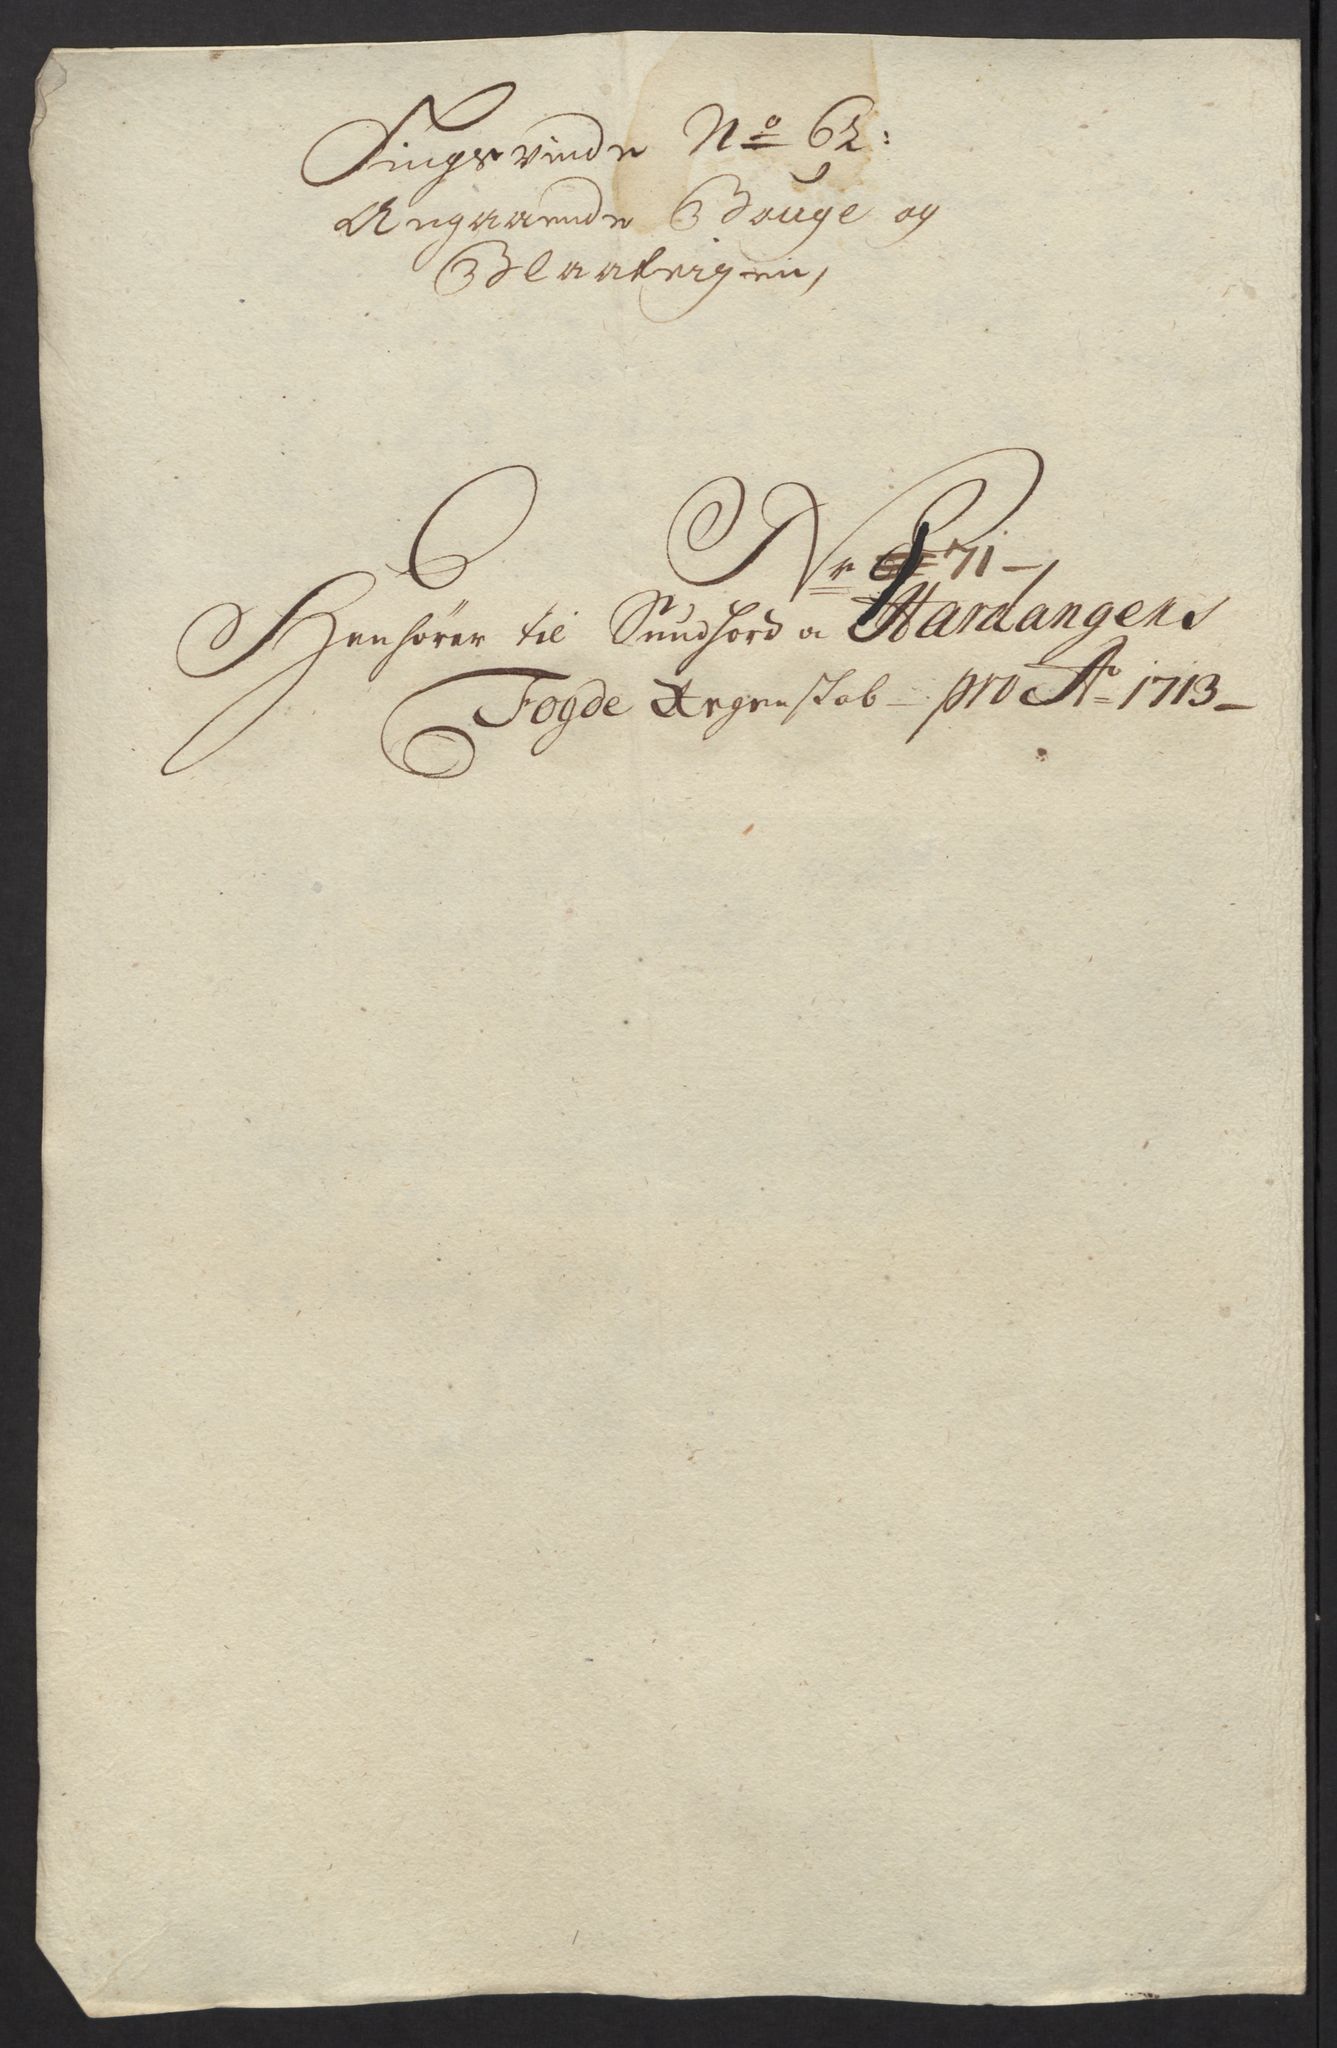 Tingsvinde No 62:
Angaaende Bouge og
Blaakeigen,
Nr 71 –
Henhörer til Sundhord a Hardangers
Fogde Regenskab – pro Ao 1713 –